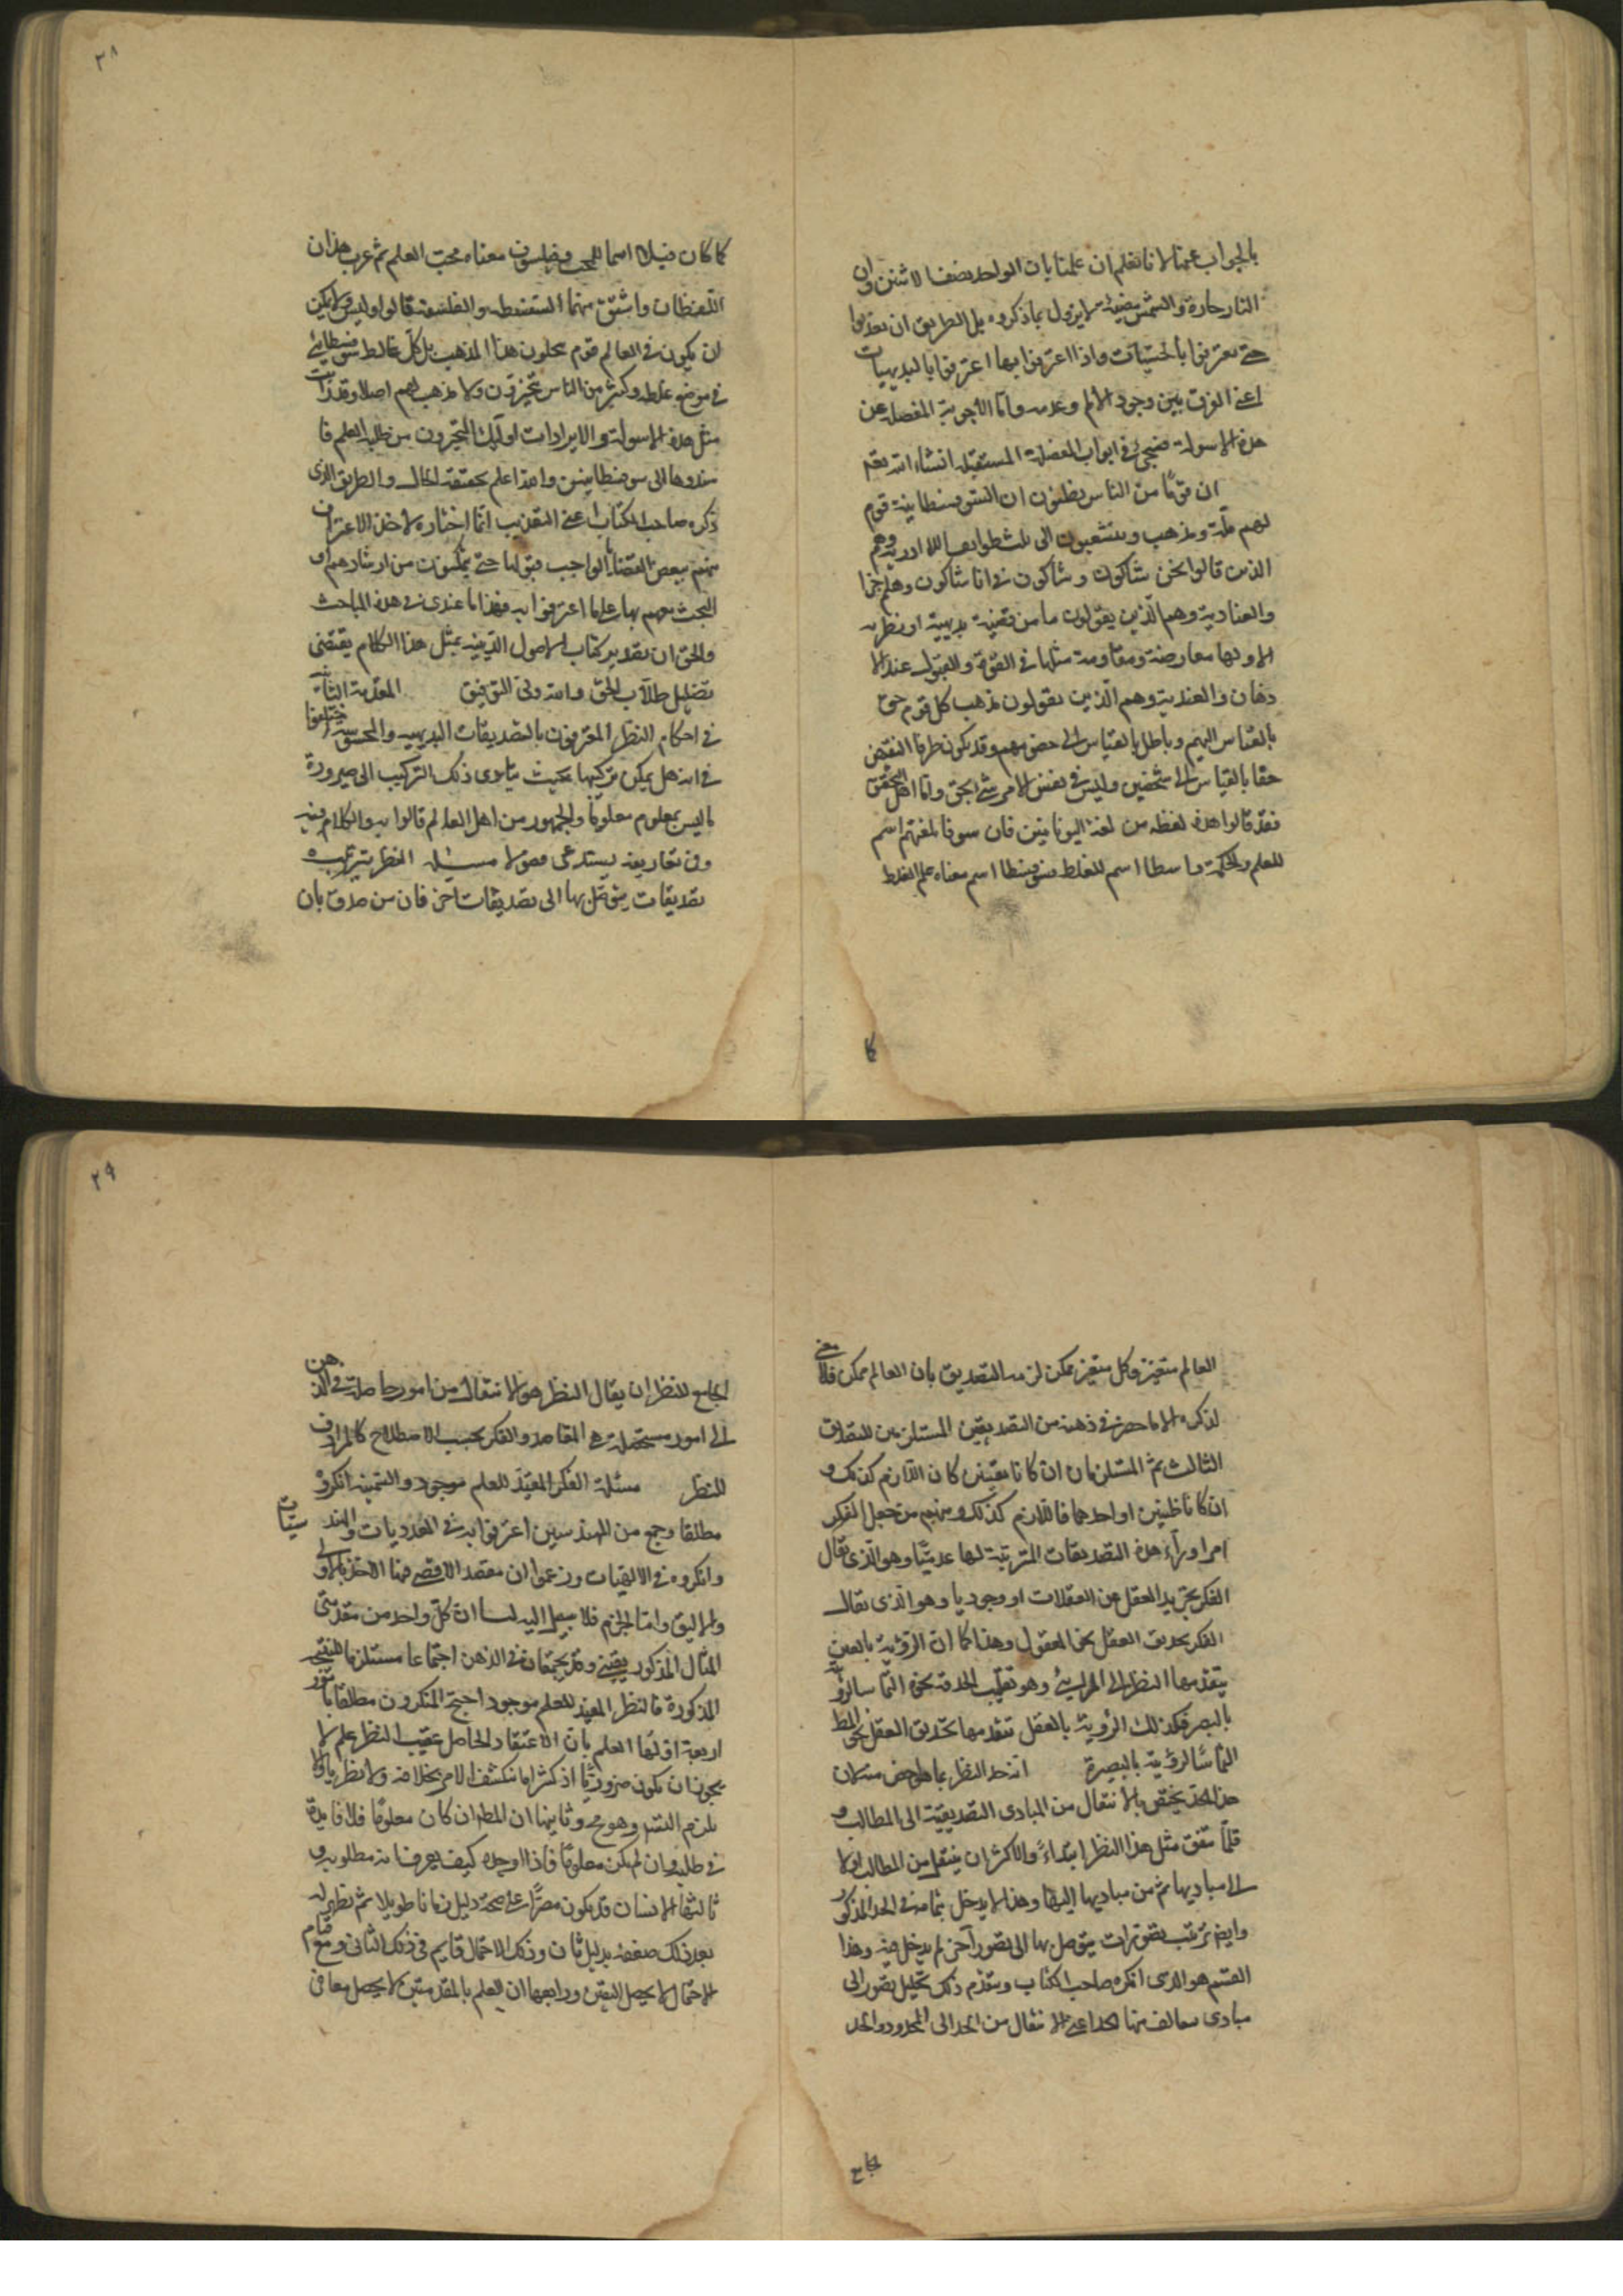 ٢٨
بالجواب عنها لانا نعلم ان علمنا بان الواحد نصف الاثنين وان
النار حارة والشمس مضيئة لا يزول بما ذكروه بل الطريق ان يعذبوا
حتى يعترفوا بالحسيات واذا اعترفوا بها اعترفوا بالبديهيات
اعنى الفرق بين وجود الالم وعدمه واما الاجوبة المفصلة عن
هذه الاسولة فيجئ فى ابواب المفصلة المستقبله انشاء الله تعم
ان قومًا من الناس يظنون ان السوفسطائية قوم
لهم ملّة ومذهب ويتشعبون الى ثلث طوايف اللاادرية وهم
الذين قالوا نحن شاكون وشاكون فى انا شاكون وهلم جرا
والعنادية وهم الذين يقولون ما من قضية بديهية او نظريه
الا ولها معارضة ومقاومة مثلها فى القوة والقبول عند الا
ذهان والعندية وهم الّذين يقولون مذهب كل قوم حق
بالقياس اليهم وباطل بالقياس الى خصومهم وقد يكون طرفا النقيض
حقا بالقياس الى شخصين وليس فى نفس الامر شئ بحق واما اهل التحقيق
فقد قالوا هذه لفظه من لغة اليونانيين فان سوفا بلغتهم اسم
للعلم والحكمة واسطا اسم للغلط فسوفسطا اسم معناه علم الغلط
كا
كا كان فيلا اسما للمحب وفيلسوف معناه محب العلم ثم عرب هذان
اللفظان واشتق منهما السفسطه والفلسفة قالوا وليس ولا يمكن
ان يكون فى العالم قوم ينحلون هذا المذهب بل كل غالط سوفسطائى
فى موضع غلطه وكثير من الناس متحيرون ولا مذهب لهم اصلا وقد رتب
مثل هذه الاسولة والايرادات اولئك المتحيرون من طلبه العلم فا
سندوها الى سوفسطائيين والله اعلم بحقيقة الحال والطريق الذى
ذكره صاحب الكتاب اعنى التعذيب انما اختاره لاخذ الاعتراف
منهم ببعض القضايا الواجب قبولها حتى يمكنون من ارشادهم او
البحث معهم بها على ما اعترفوا به فهذا ما عندى فى هذه المباحث
والحق ان تصدير كتاب الاصول الدينيه بمثل هذا الكلام يقتضى
تضليل طلاب الحق والله ولى التوفيق المقدمة الثانية
فى احكام النظر المعترفون بالتصديقات البديهيه والمحسوسه اختلفوا
فى انه هل يمكن تركيبها بحيث يتادى ذلك التركيب الى صيرورة
ما ليس بمعلوم معلومًا والجمهور من اهل العالم قالوا به والكلام فيه
وفى تفاريعه يستدعى فصولا مسئله النظر ترتيب
تصديقات يتوصل بها الى تصديقات اخر فان من صدق بان
٢٩
العالم متغير وكل متغير ممكن لزمه التصديق بان العالم ممكن فلا معنى
لفكره الا ما حضر فى ذهنه من التصديقين المستلزمين للتصديق
الثالث ثم المستلزمان ان كانا يقينين كان اللازم كذلك و
ان كانا ظنيين او احدهما فاللازم كذلك ومنهم من جعل الفكر
امرا وراء هذه التصديقات المترتبة اما عدميًا وهو الذى يقال
الفكر تجريد العقل عن الغفلات او وجوديا وهو الذى يقال
الفكر تحديق العقل نحو المعقول وهذا كما ان الرؤية بالعين
يتقدمها النظر الى المرئى وهو تقليب الحدقة نحوه التماسا لرؤيته
بالبصر فكذلك الرؤية بالعقل تتقدمها تحديق العقل نحو المط
التماسًا لرؤيته بالبصيرة انه حد النظر بما هو اخص منه لان
هذا الحد يختص بالانتقال من المبادى التصديقية الى المطالب و
قلّما يتفق مثل هذا النظر ابتداءً والاكثر ان ينتقل من المطالب اولا
الى مباديها ثم من مباديها اليها وهذا لا يدخل بتمامه فى الحد المذكور
وايضم ترتيب تصورات يتوصل بها الى تصور آخر لم يدخل فيه وهذا
القسم هو الذى انكره صاحب الكتاب ويتقدم ذلك تحليل تصور الى
مبادى يتالف منها الحد اعنى الانتقال من الحد الى المحدود والحد
الجامع
الجامع للنظر ان يقال النظر هو الانتقال من امور حاصلة فى الذهن
الى امور مستحصلة هى المقاصد والفكر بحسب الاصطلاح كالمرادف
للنظر مسئلة الفكر المفيد للعلم موجود والسمنيه انكروه
مطلقا وجمع من المهندسين اعترفوا به فى العدديات والهندسيات
وانكروه فى الالهيات وزعموا ان مقصد الاقصى فيها الاخذ بالاولى
والاليق واما الجزم فلا سبيل اليه لنا ان كل واحد من مقدمتى
المثال المذكور يقينى وقد يجتمعان فى الذهن اجتماعا مستلزما للنتيجه
المذكورة فالنظر المفيد للعلم موجود احتج المنكرون مطلقا بامور
اربعة اولها العلم بان الاعتقاد الحاصل عقيب النظر علم لا
يجوز ان يكون ضروريا اذ كثيرا ما ينكشف الامر بخلافه ولا نظريا والا
يلزم التسل وهو مح وثانيها ان المط ان كان معلومًا فلا فايدة
فى طلبه وان لم يكن معلومًا فاذا وجده كيف يعرف انه مطلوبه و
ثالثها الانسان قد يكون مصرًّا على صحة دليل زمانا طويلا ثم يظهر له
بعد ذلك ضعفه بدليل ثان وذلك الاحتمال قايم فى ذلك الثانى ومع قيام
الاحتمال لا يحصل اليقين ورابعها ان العلم بالمقدمتين لا يحصل معا فى